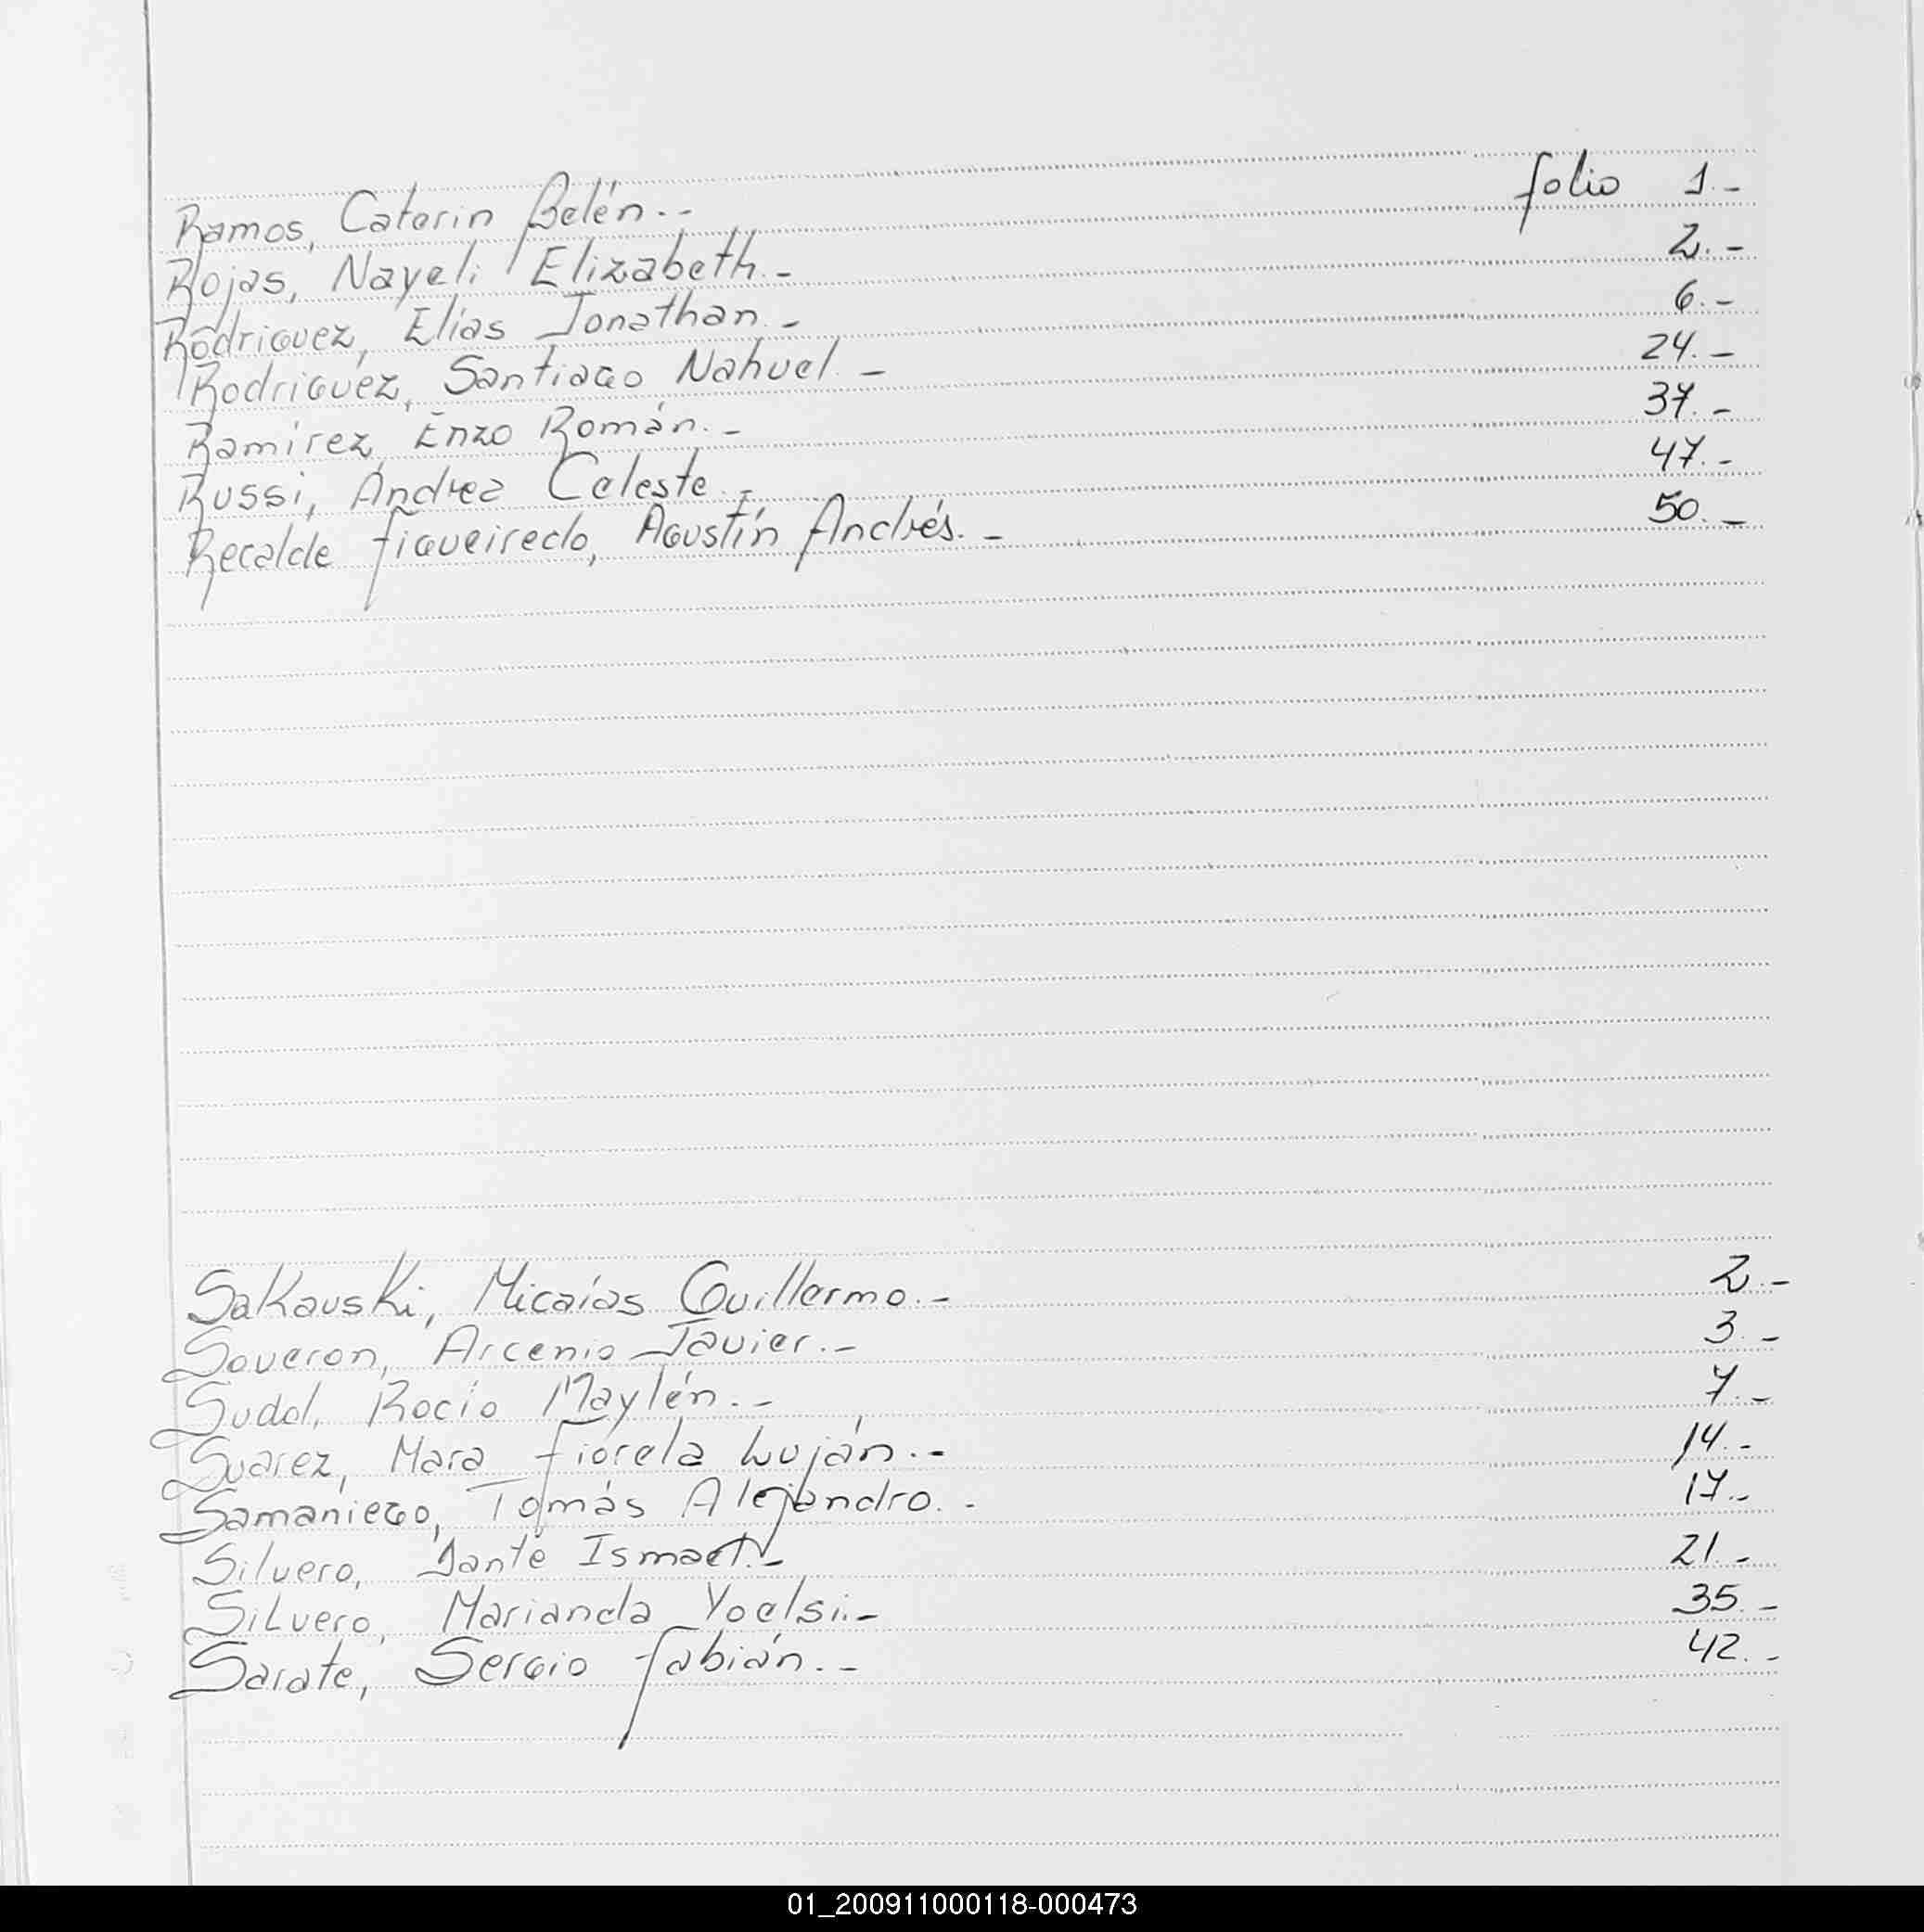 Ramos, Caterin Belén.- folio 1.-
Rojas, Nayeli Elizabeth.- 2.-
Rodriguez, Elías Jonathan.- 6.-
Rodriguez, Santiago Nahuel.- 24.-
Ramirez, Enzo Román.- 37.-
Russi, Andrea Celeste.- 47.-
Recalde Figueiredo, Agustín Andrés.- 50.-
Sakauski, Micaías Guillermo.- 2.-
Soveron, Arcenio Javier.- 3.-
Sudol, Rocío Maylén.- 7.-
Suarez, Mara Fiorela Luján.- 14.-
Samaniego, Tomás Alejandro.- 17.-
Silvero, Dante Ismael.- 21.-
Silvero, Marianela Yoelsi.- 35.-
Sarate, Sergio Fabián.- 42.-
01_200911000118-000473